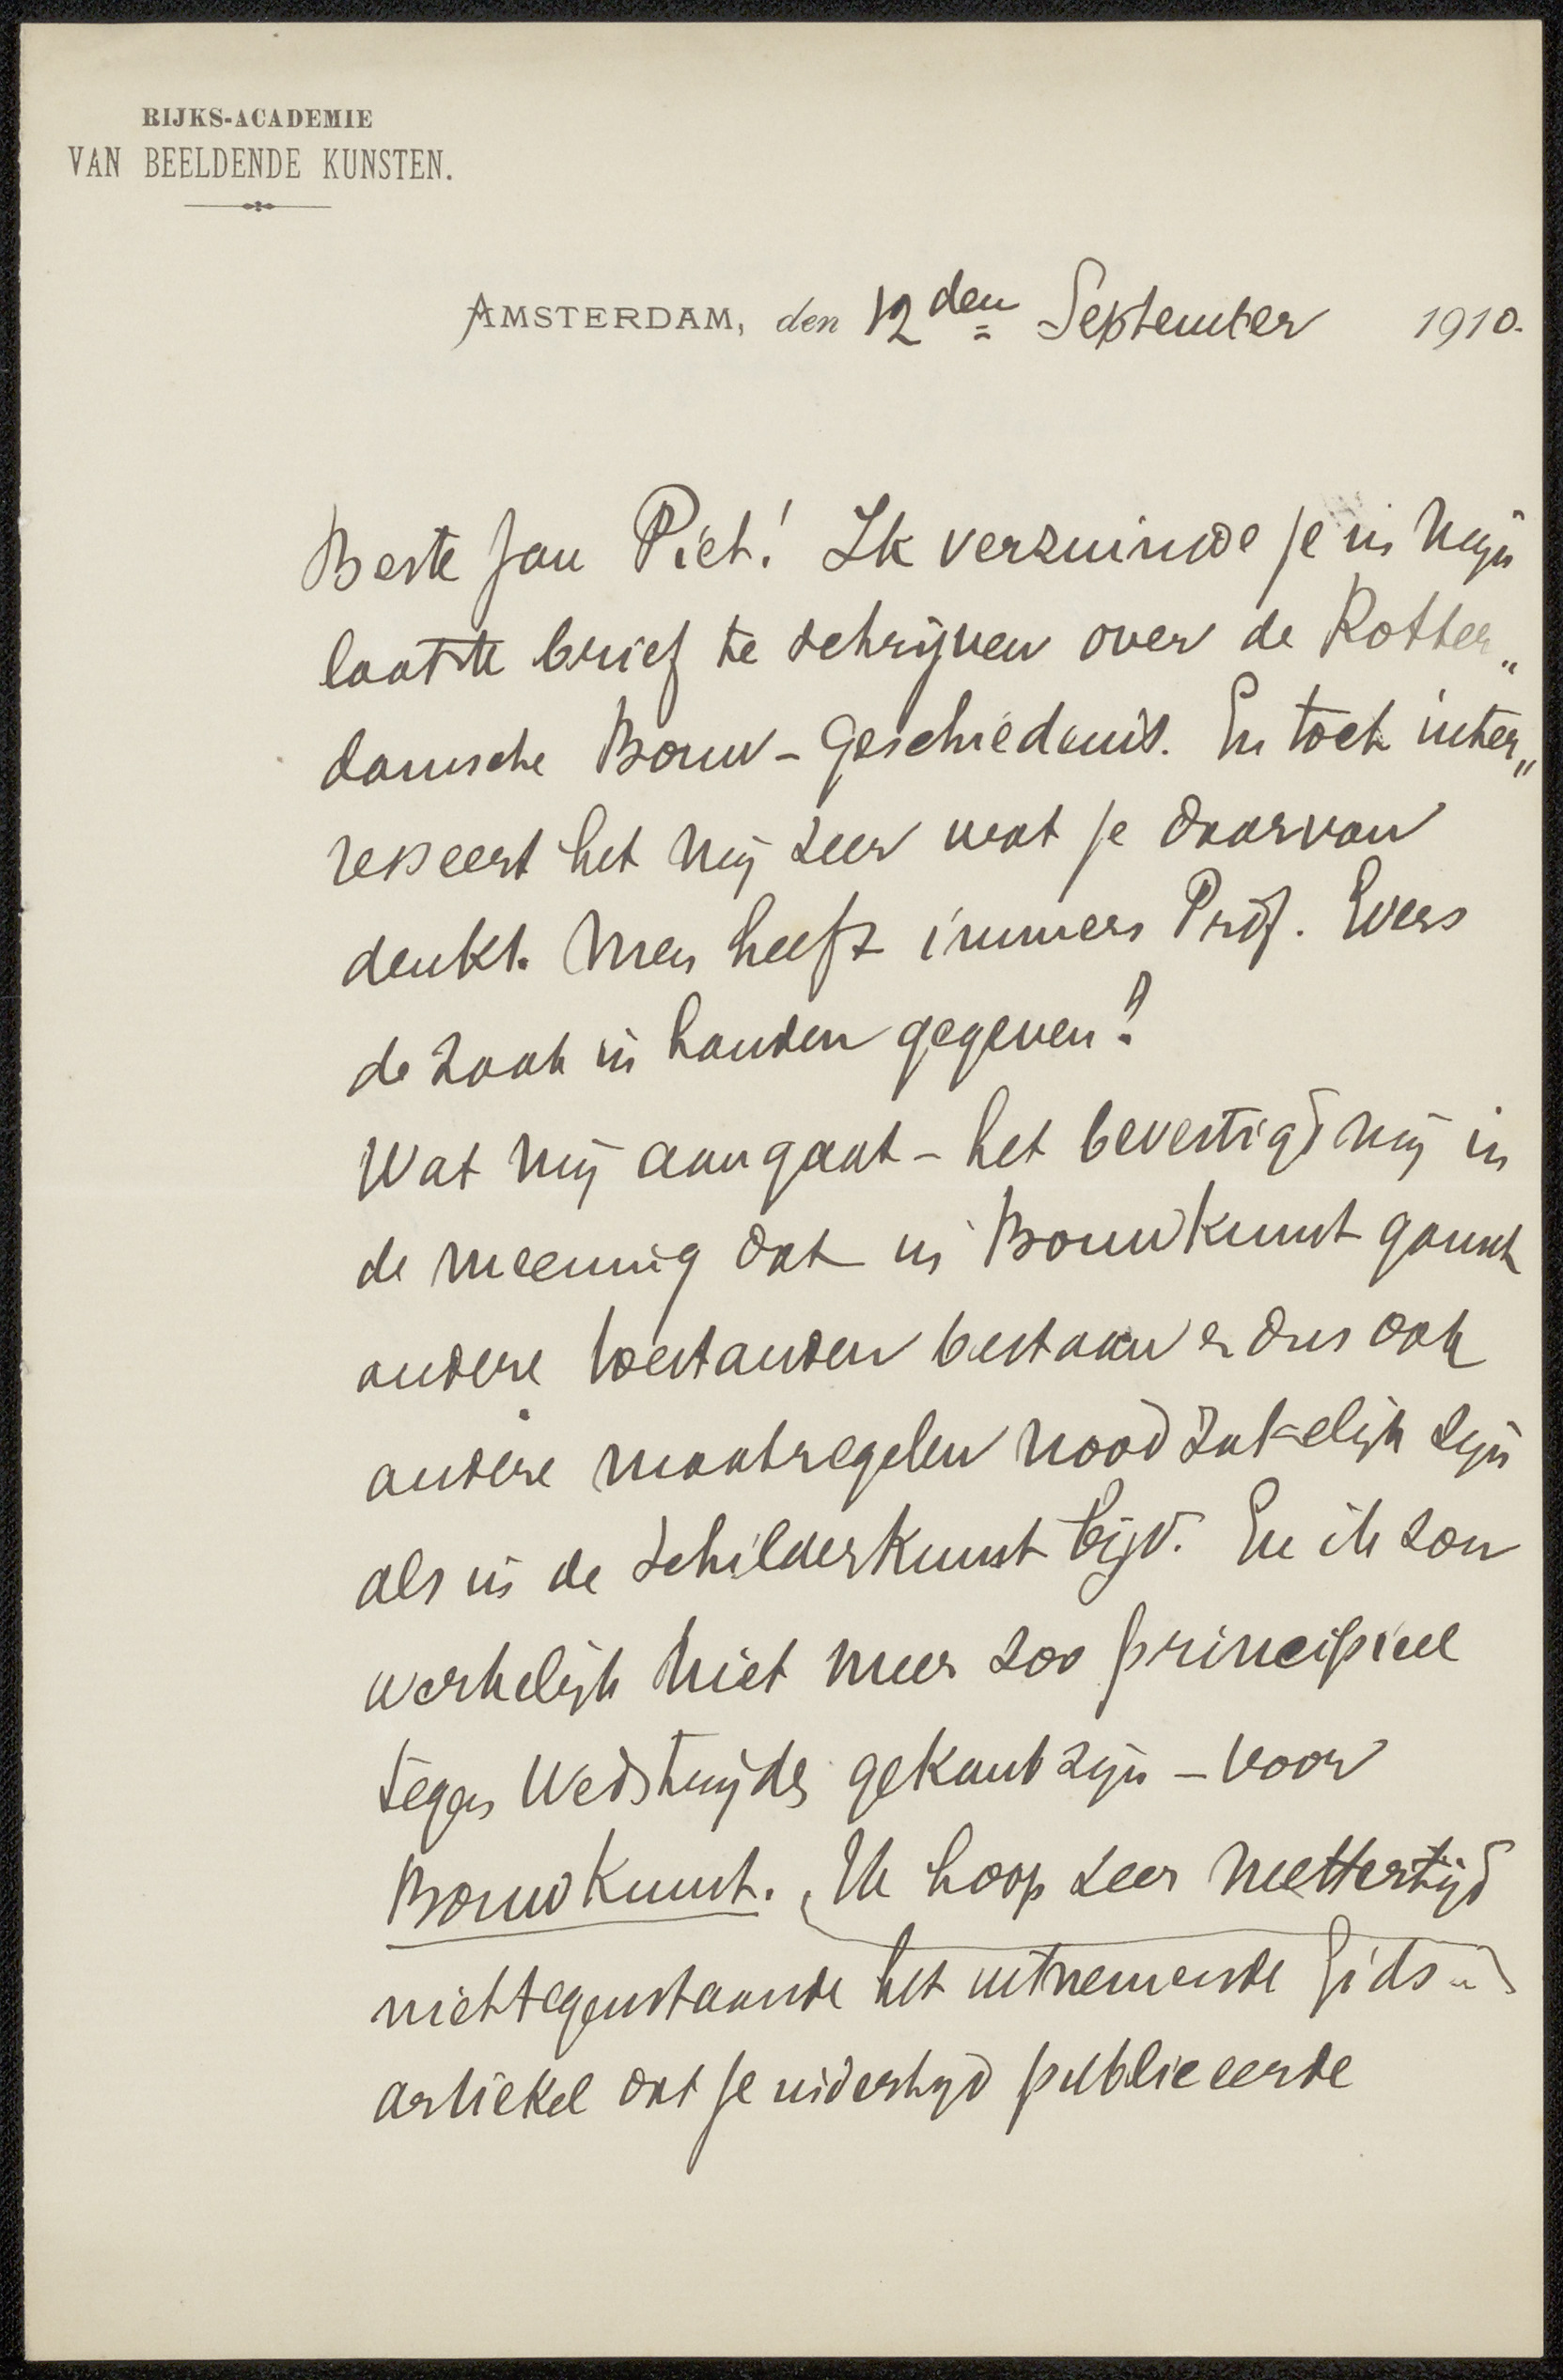 RIJKS-ACADEMIE
VAN BEELDENDE KUNSTEN.
AMSTERDAM, den 12den September 1910.
Beste Jan Piet! Ik verzuimde je in mijn
laatste brief te schrijven over de Rotter„
damsche Bouw-geschiedenis. En toch inter„
resseert het mij zeer wat je daarvan
denkt. Men heeft immers Prof. Evers
de zaak in handen gegeven?
Wat mij aangaat - het bevestigd mij in
de meening dat in Bouwkunst gansch
andere toestanden bestaan en dus ook
andere maatregelen noodzakelijk zijn
als in de schilderkunst bijv. En ik zou
werkelijk niet meer zoo principieel
tegen Wedstrijden gekant zijn - voor
Bouwkunst. Ik hoop zeer mettertijd
niettegenstaande het uitnemende Gids-
artiekel dat je indertijd publiceerde